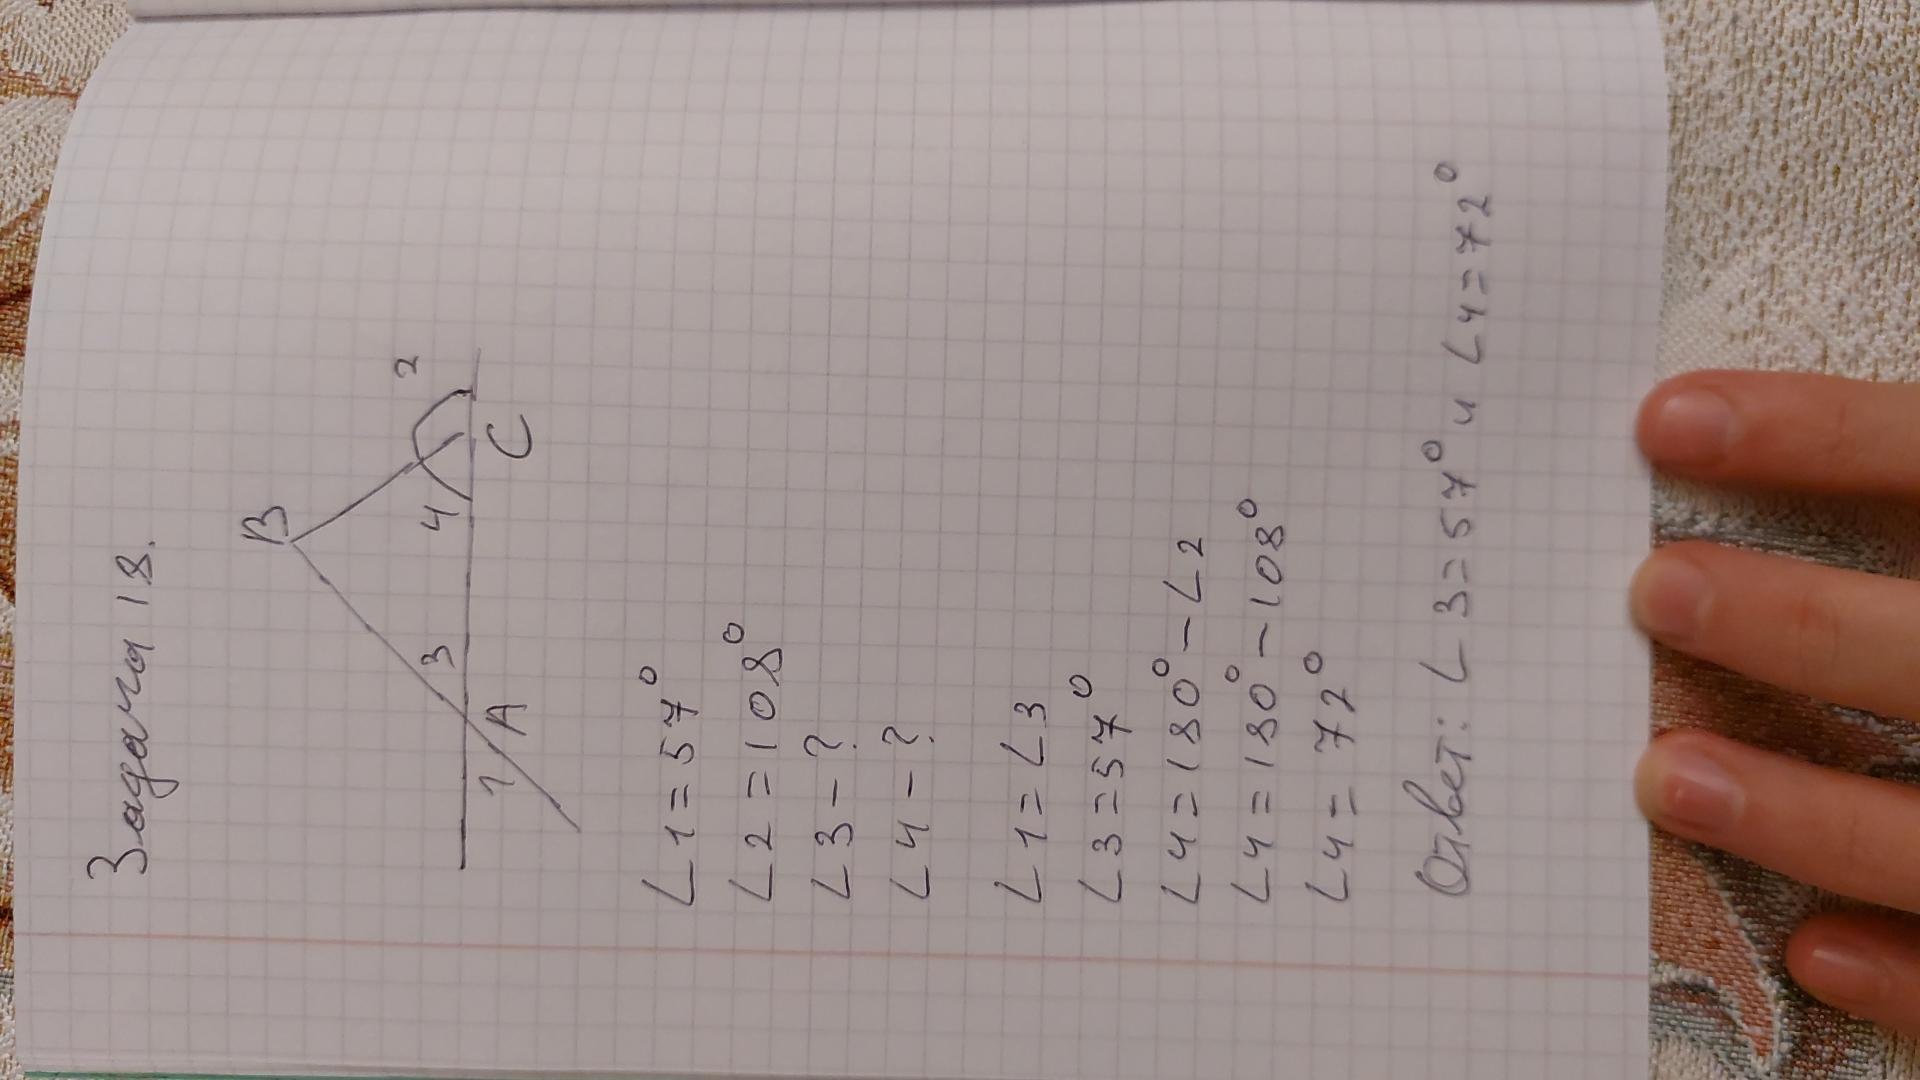 Задача 18.
B
2
4
3
C
A
1
∠1=57°
∠2=108°
∠3-?
∠4-?
∠1=∠3
∠3=57°
∠4=180°-∠2
∠4=180°-108°
∠4=72°
Ответ: ∠3=57° и ∠4=72°